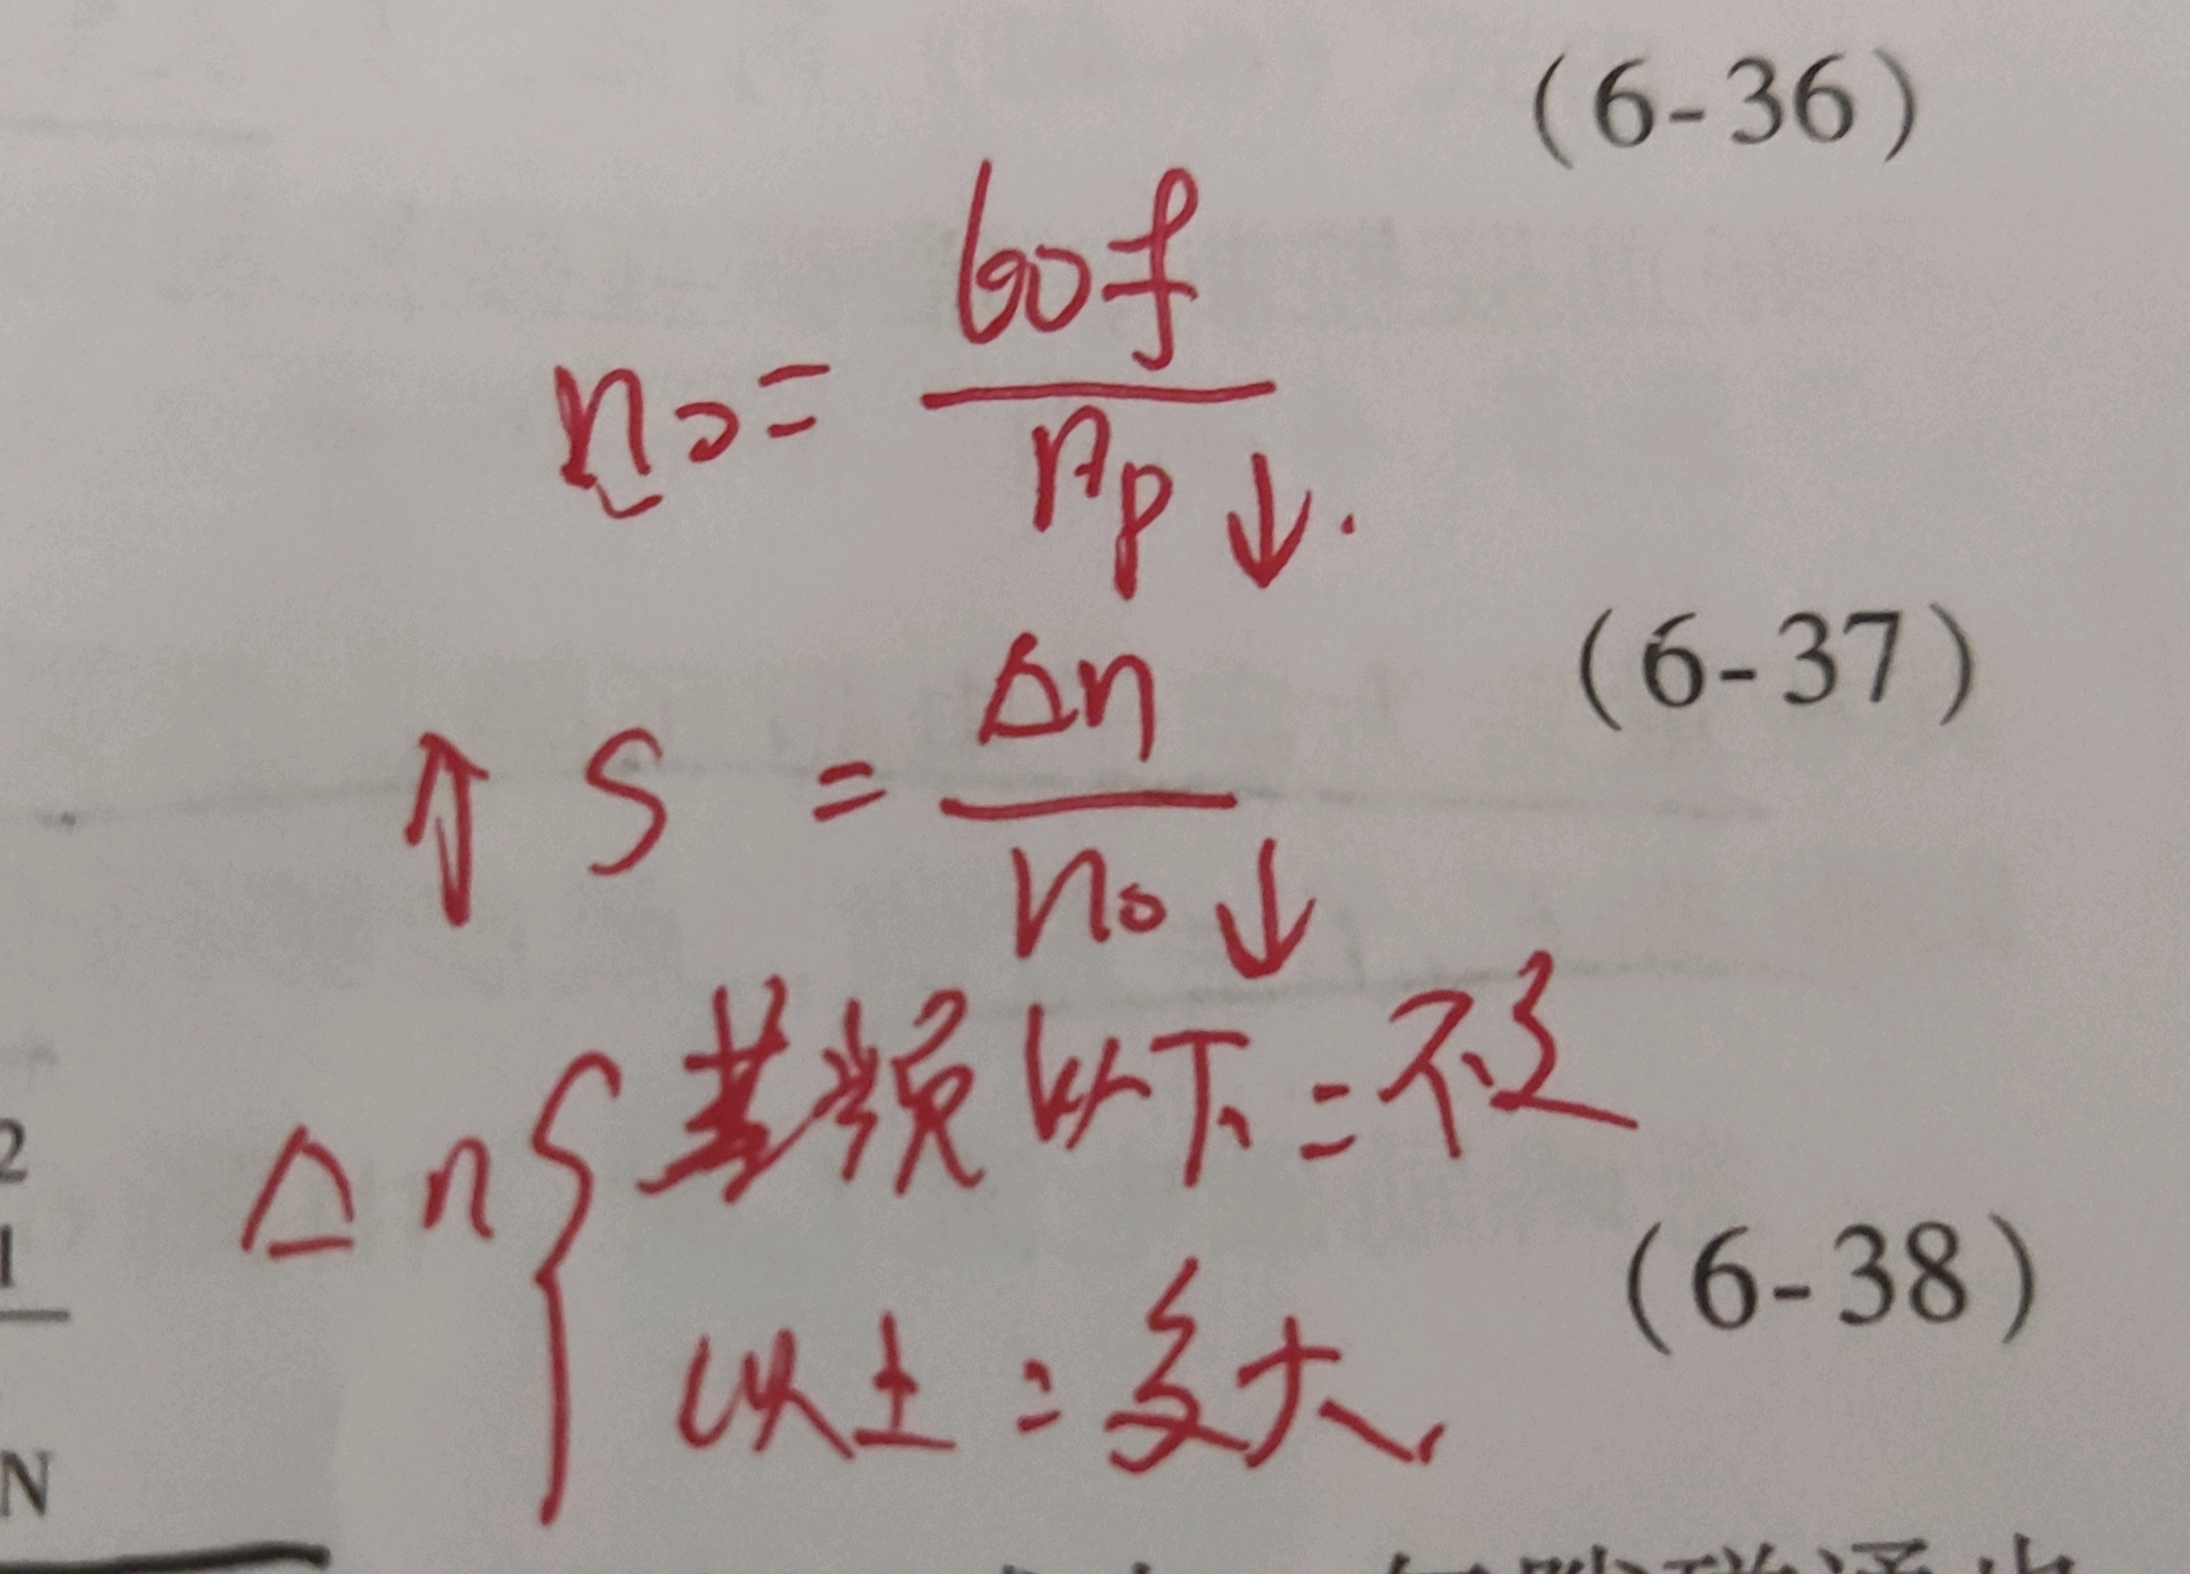 (6-36)
n₀ = 60f / nₚ ↓.
(6-37)
↑ S = Δn / n₀ ↓
Δn { 基频以下 = 不变
(6-38)
以上 = 变大
2
1
N